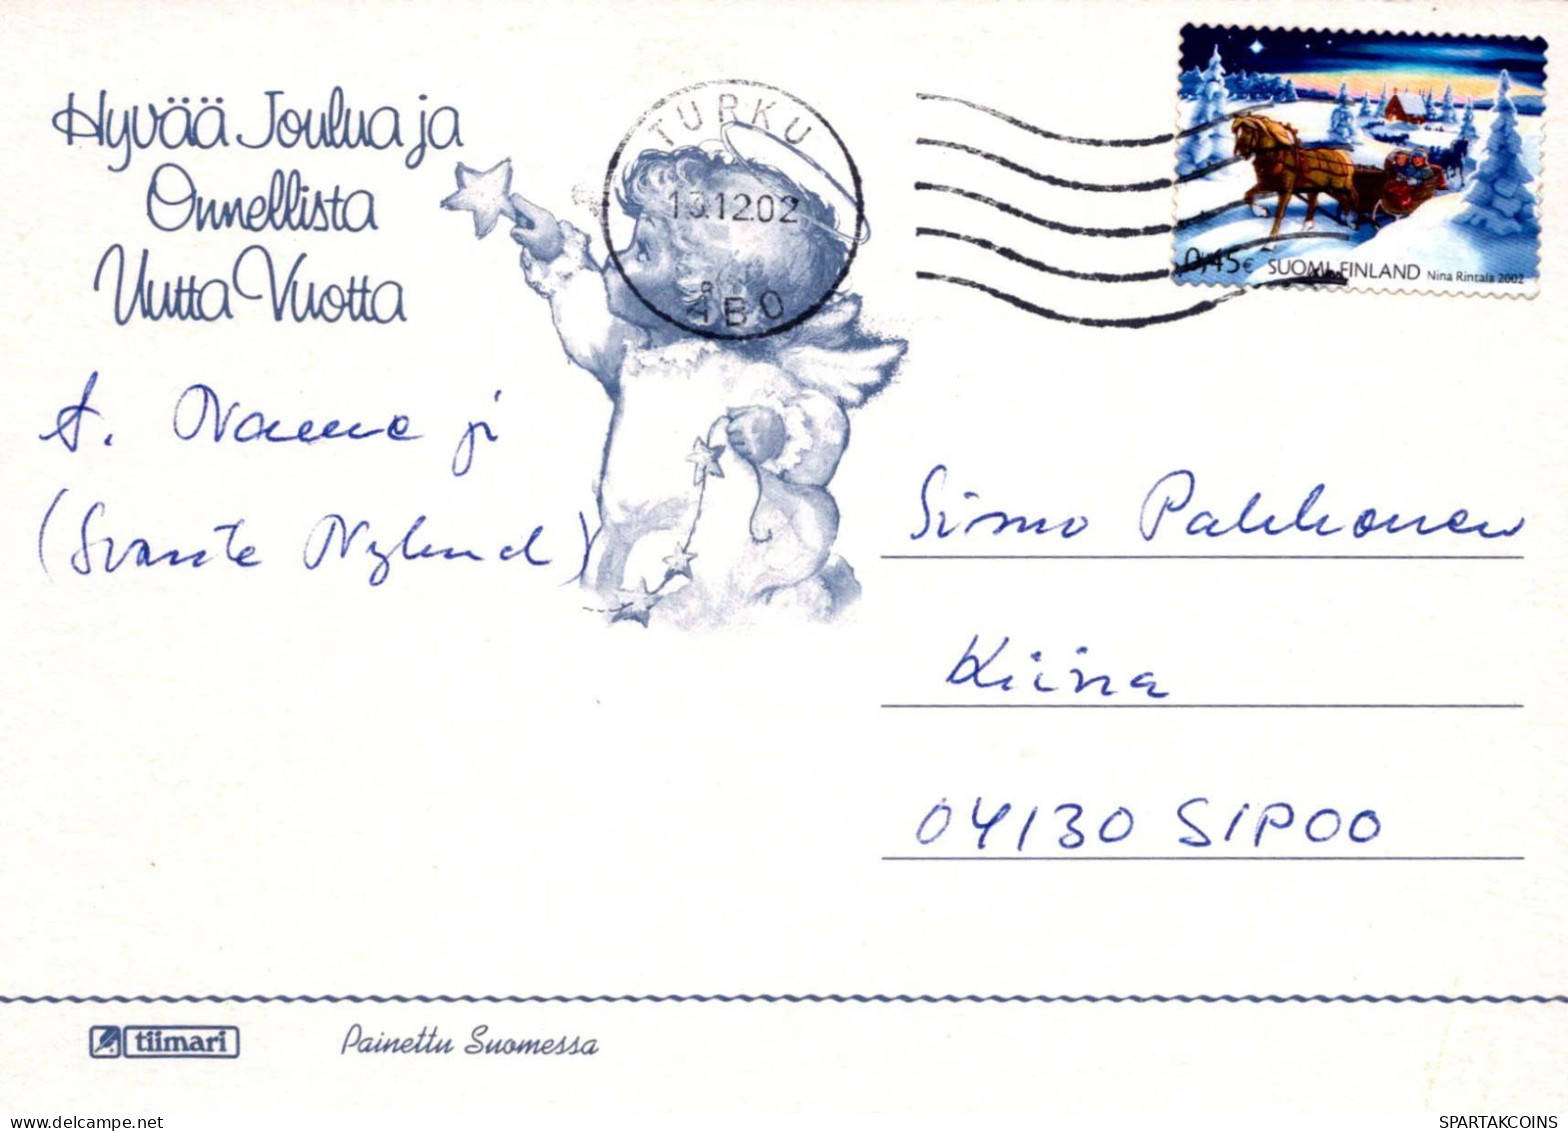 Hyvää Joulua ja
Onnellista
Uutta Vuotta
TURKU
13.12.02
ÅBO
0,45€ SUOMI FINLAND Nina Rintala 2002
(Svante Nylund)
Simo Pakkonen
Kiina
04130 SIPOO
tiimari
Painettu Suomessa
SPARTAKCOINS